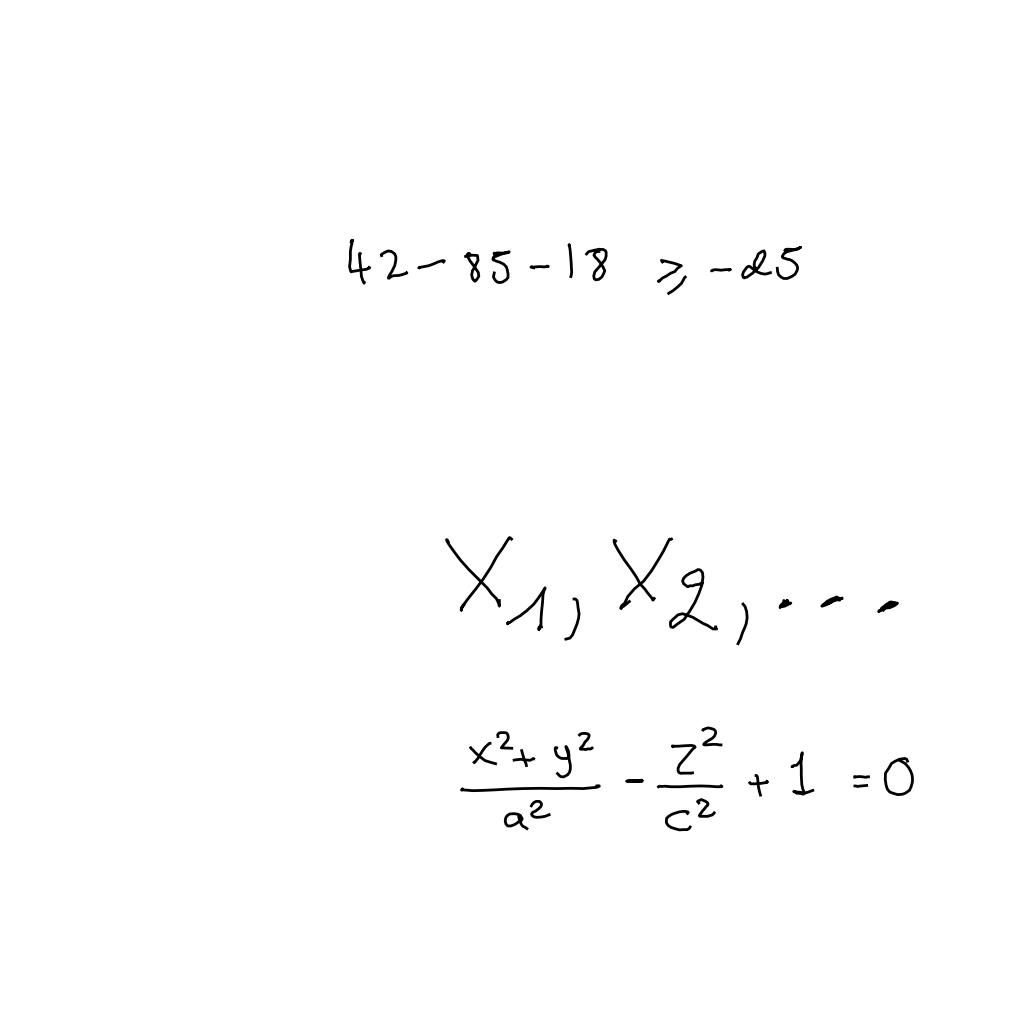 42 - 85 - 18 ⩾ -25
X₁, X₂, ...
\frac{x^2 + y^2}{a^2} - \frac{z^2}{c^2} + 1 = 0